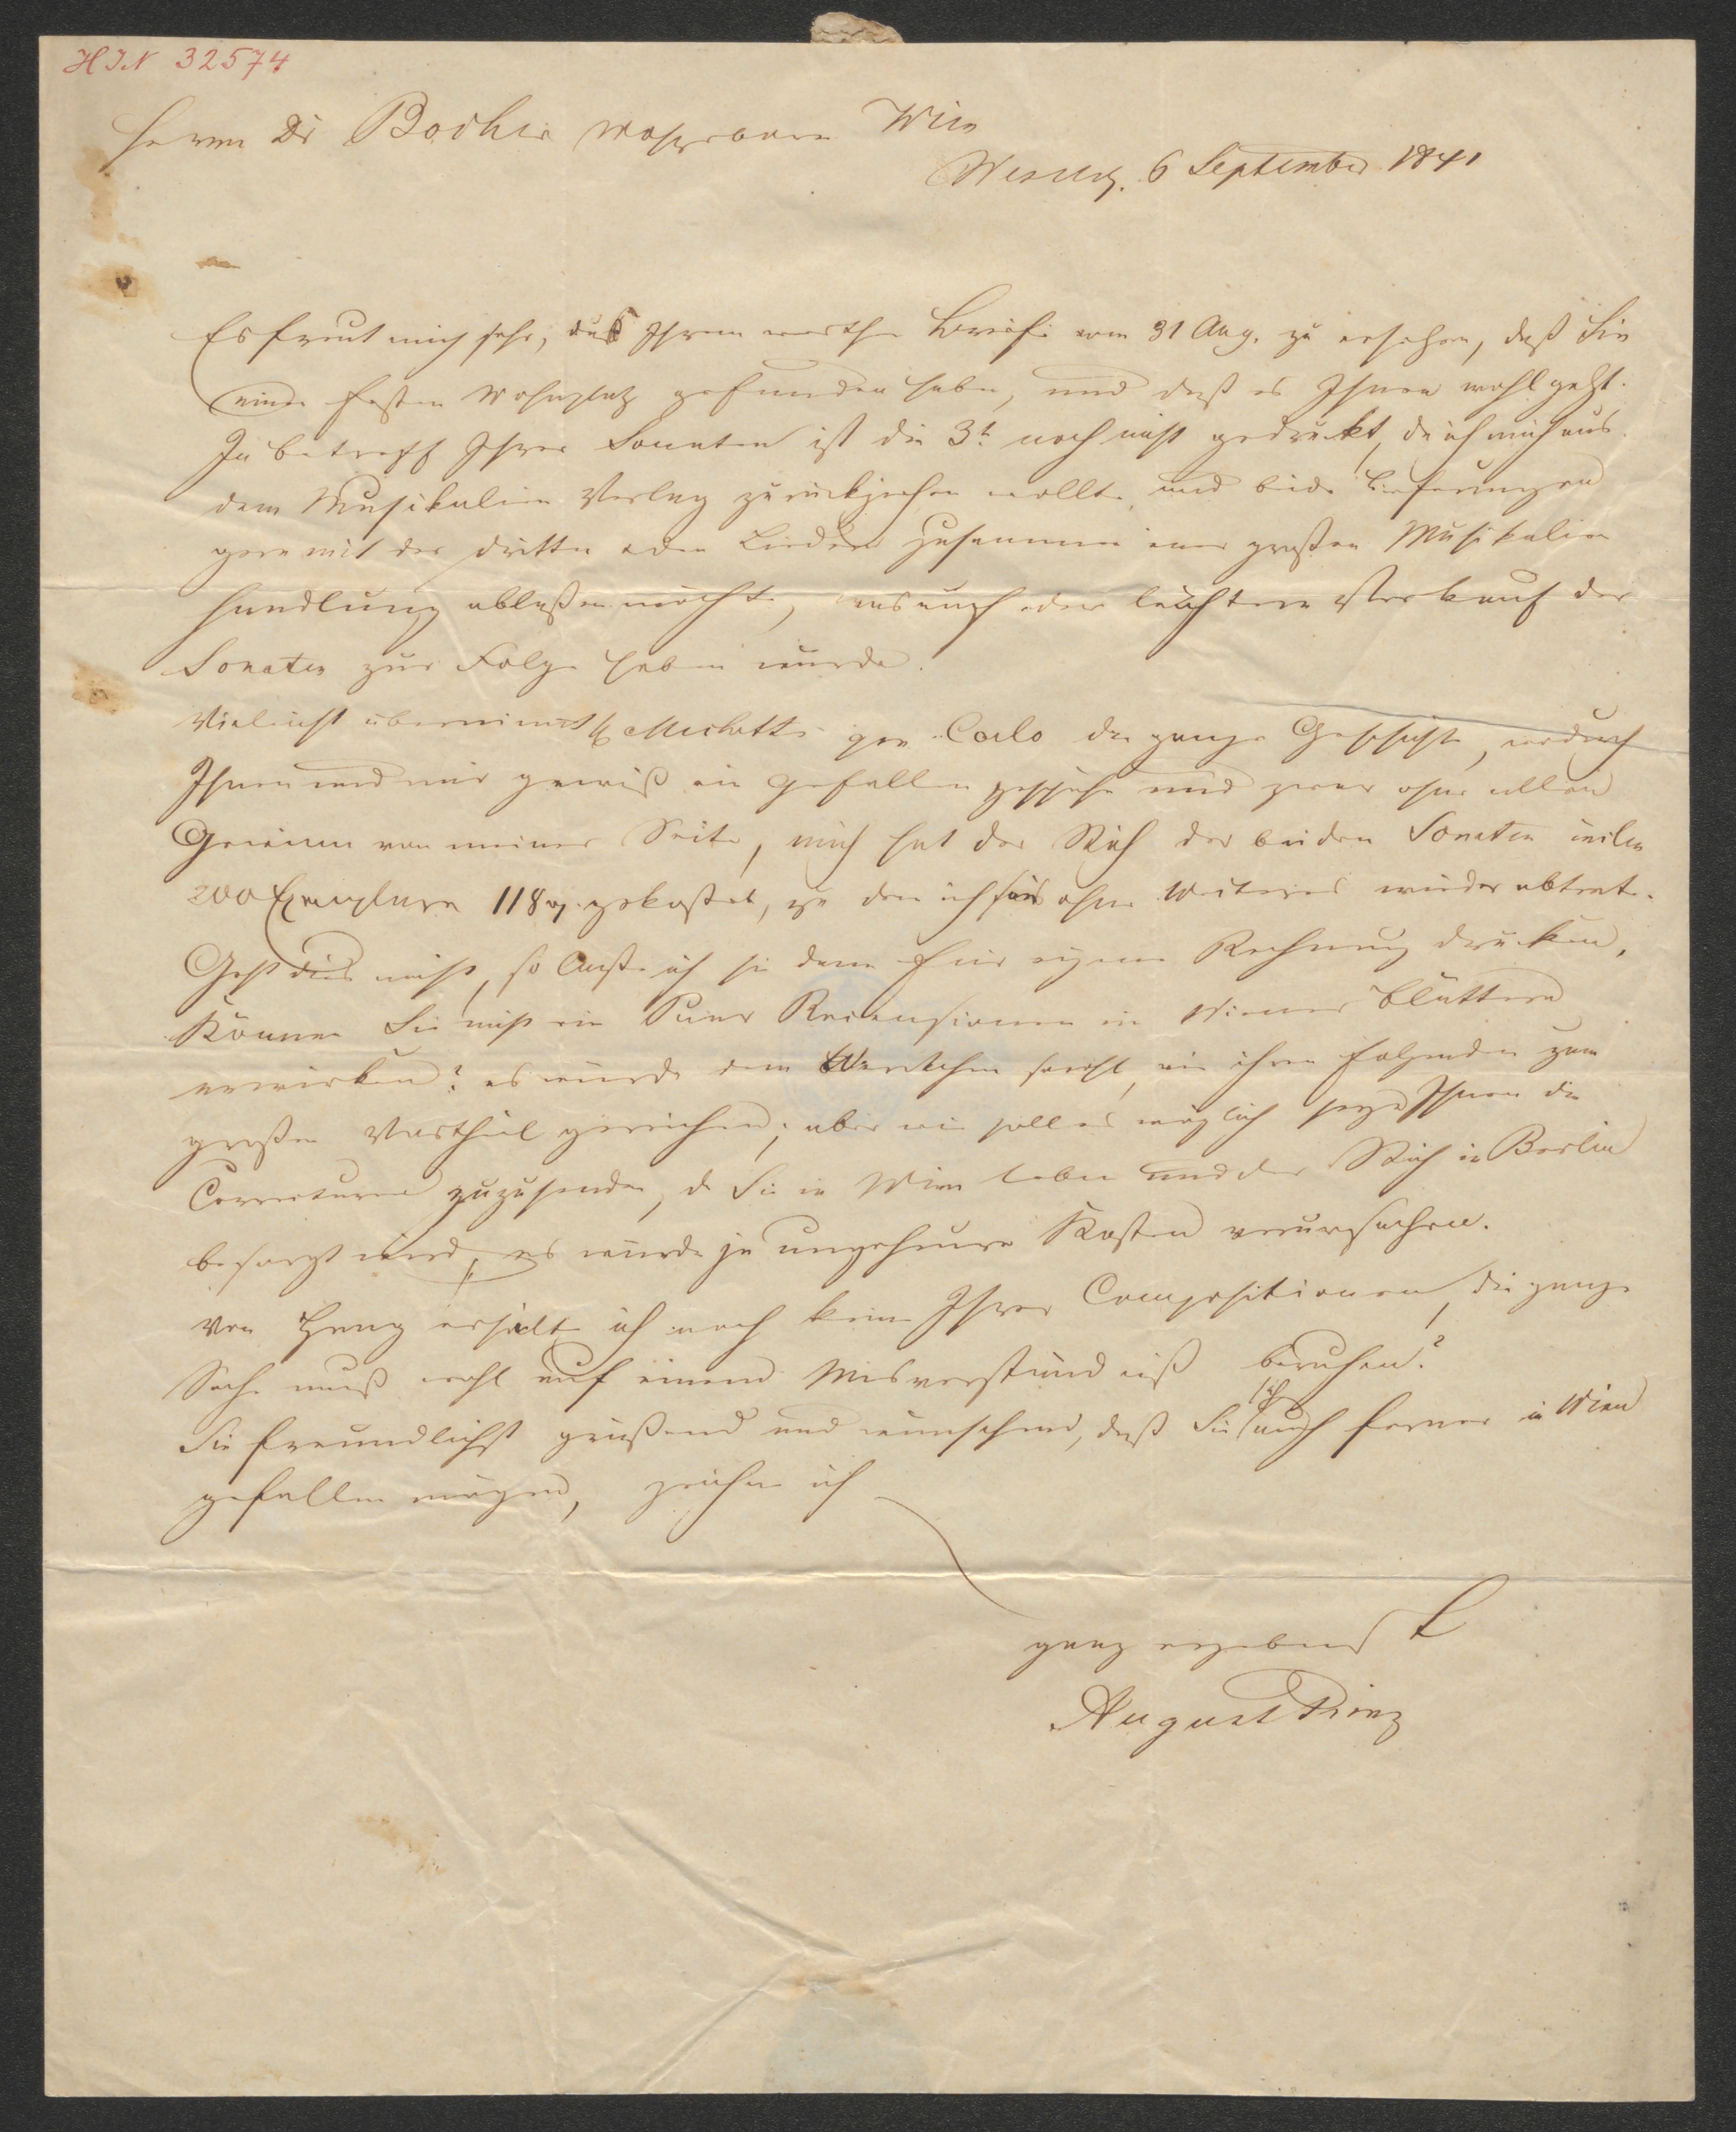 HIN 32574
Herrn Dr Becher Wien
Wesel, 6 September 1841
Es freut mich sehr, aus Ihrem werthen Briefe vom 31 Aug. zu ersehen, daß Sie
einen festen Wohnplatz gefunden haben, und daß es Ihnen wohl geht.
In betreff Ihrer Sonaten ist die 3t noch nicht gedruckt, da ich mich aus
dem Musikalien Verlag zurückziehen wollte, und beide Lieferungen
gern mit der dritten oder Liedern zusammen einer großen Musikalien
handlung ablaßen möchte, was auch leichteren Verkauf der
Sonaten zur Folge haben würde.
Vielleicht übernimmt H Mechetti Carlo die ganze Geschichte, wodurch
Ihnen und mir gewiß ein Gefallen geschehe und zwar ohne allen
Gewinn von meiner Seite, mich hat der Stich der beiden Sonaten
200 Exemplare 118 gekostet, zu dem ich sie ohne Weiteres wieder abtrete.
Geht dies nicht, so laße ich sie dann für eigene Rechnung drucken,
Können Sie nicht ein Paar Recensionen in Wiener Blättern
erwirken? es würde dem Werkchen sowohl, wie ihren folgenden zum
großen Vortheil gereichen; aber wie soll es möglich seyn Ihnen die
Correcturen zuzusenden, da Sie in Wien leben und der Stich in Berlin
besorgt wird, es würde ja ungeheure Kosten verursachen.
Von erhielt ich noch keine Ihrer Compositionen, die ganze
Sache muß wohl auf einem Misverständniß beruhen?
Sie freundlichst grüßend und wünschend, daß Sie sich auch ferner in Wien
gefallen mögen, zeichne ich
ganz ergebenst
August Prinz